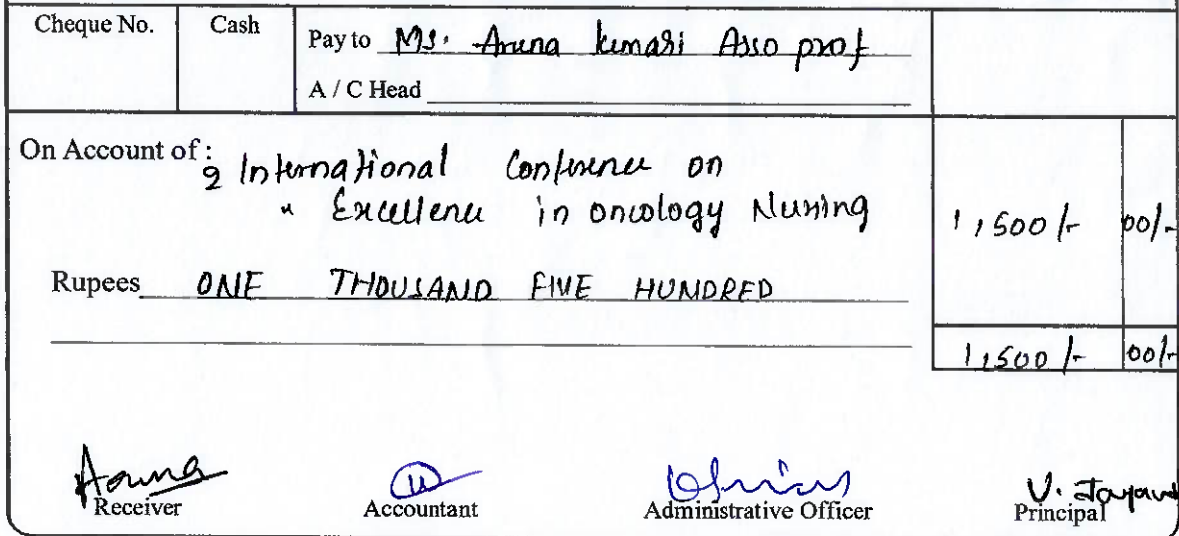 Cheque No. Cash Pay to Ms. Aruna kumari Asso prof
A / C Head
On Account of : 2 International Conference on
" Excellence in oncology Nursing 1,500/- 00/-
Rupees ONE THOUSAND FIVE HUNDRED
1,500/- 00/-
Aruna
Receiver Accountant Administrative Officer Principal